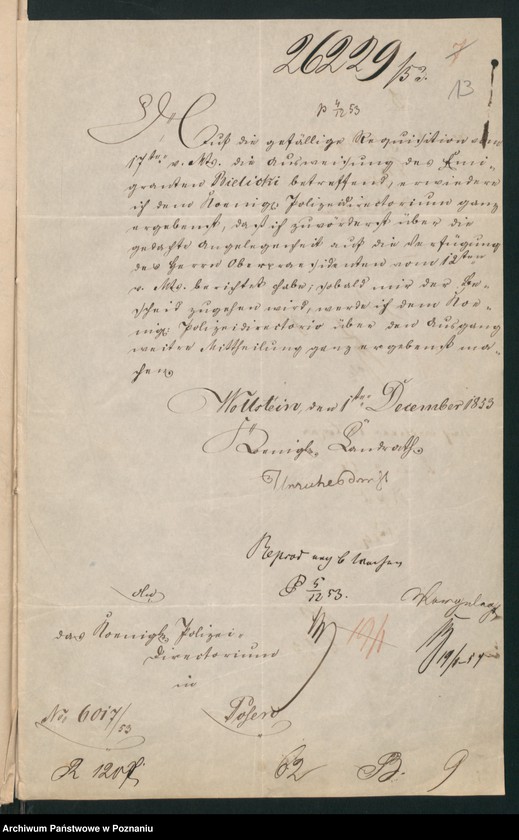 26229/53.
7
13
p 4/12 53
Auf die gefällige Requisition vom
17ten v. Mts. die Ausweisung des Emi-
granten Bielicki betreffend, erwiedere
ich dem Koenigl. Polizeidirectorium ganz
ergebenst, daß ich zuvörderst über die
gedachte Angelegenheit auf die Verfügung
des Herrn Oberpraesidenten vom 12ten
v. Mts. berichtet habe; sobald mir der Be-
scheid zugehen wird, werde ich dem Koe-
nigl. Polizeidirectorio über den Ausgang
weitre Mittheilung ganz ergebenst ma-
chen.
Wollstein, den 1ten December 1853
Koenigl. Landrath.
Unruhe
Reprod nach 6 Wochen
P 5/12 53.
An
Vorgelegt
das Koenigl. Polizei-
Directorium
19/1
19/1 54
in
No 6017/53
Posen
62
B.
9
Archiwum Państwowe w Poznaniu